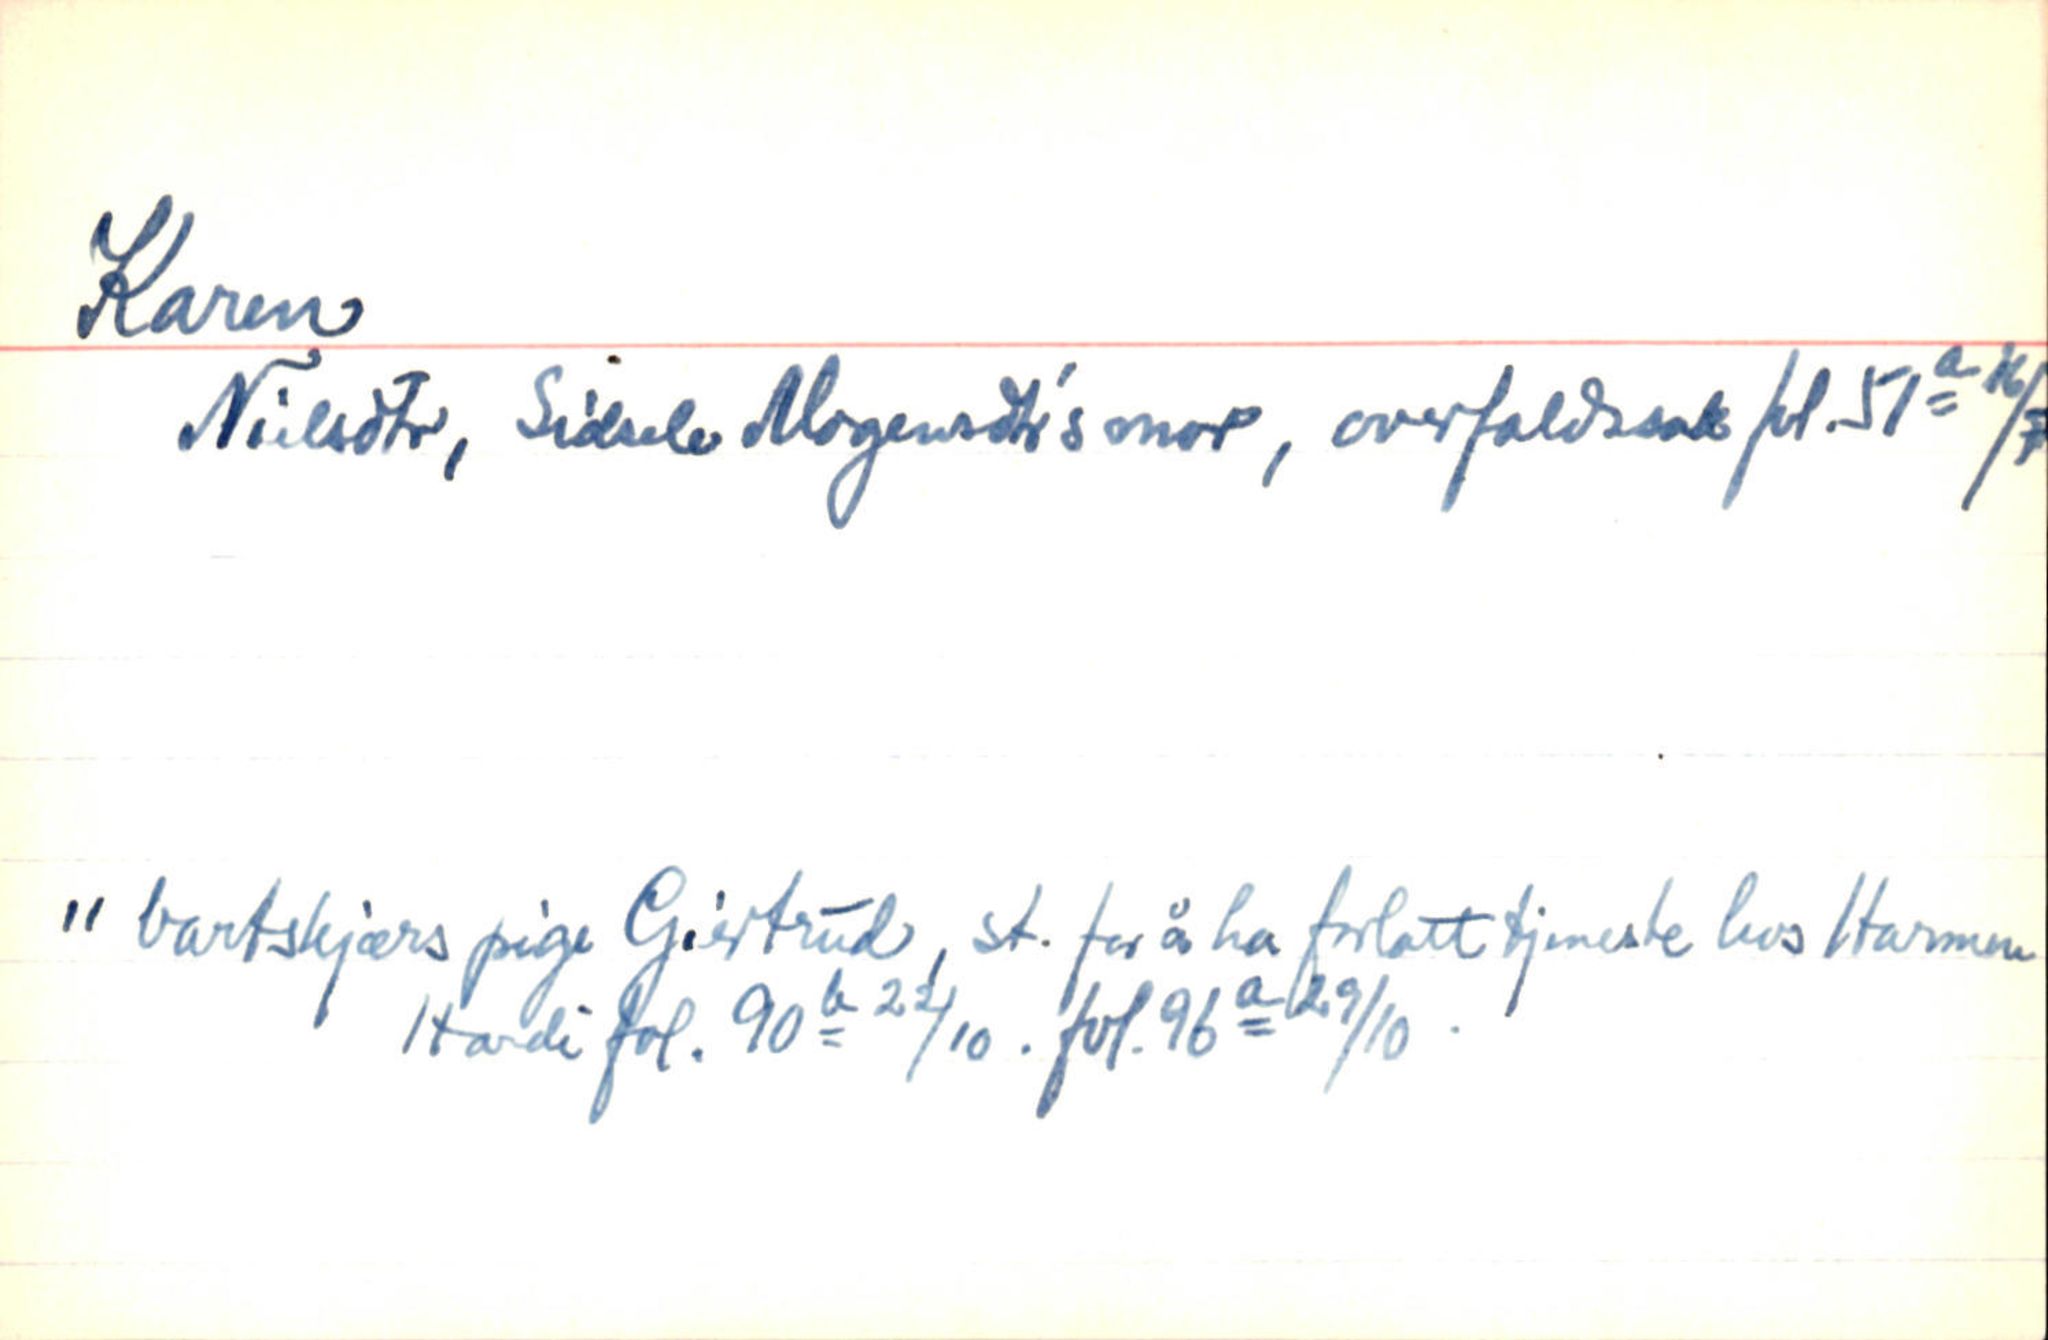 Karen
Nielsdtr, Sidsele Mogensdtr's mor, overfaldssak fol. 51ª 16/7
" bartskjærs pige Giertrud, st. for å ha forlatt tjeneste hos Harmen
Hardi fol. 90b 22/10. fol. 96a 29/10.